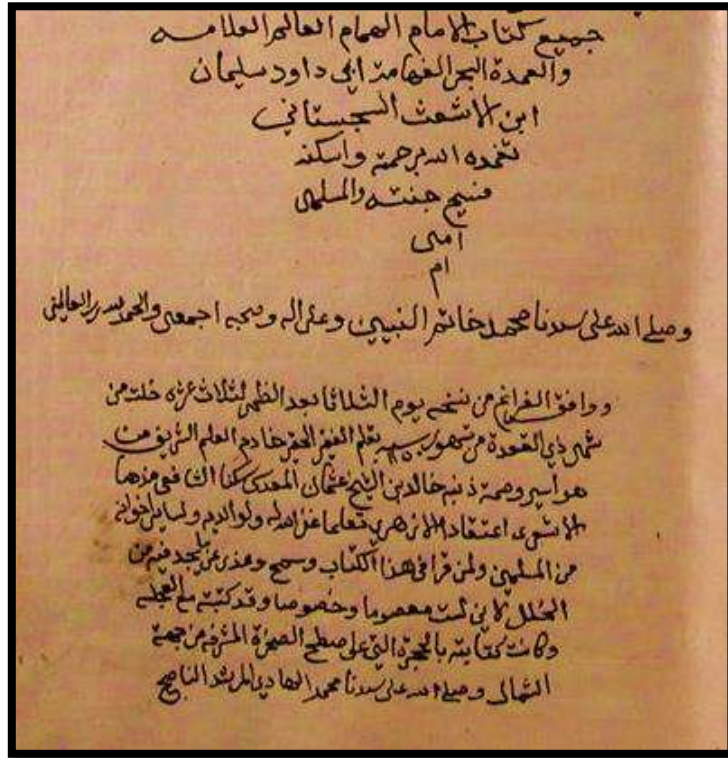 جميع كتاب الامام الهمام العالم العلامه
والعمدة البحر الفهامة ابي داود سليمان
ابن الاشعث السجستاني
تغمده الله برحمته واسكنه
فسيح جنته والمسلمين
امين
ام
وصلى الله على سيدنا محمد خاتم النبيين وعلى اله وصحبه اجمعين والحمد لله رب العالمين
ووافق الفراغ من نسخه يوم الثلاثا بعد الظهر لثلاث عشره خلت من
شهر ذي القعدة من شهور سنه بقلم الفقير الحقير خادم العلم الشريف من
هو اسير وصمة ذنبه خالد بن الشيخ عثمان المقدسي الشافعي مذهبا
الاشعري اعتقادا الازهري تعلما غفر الله له ولوالديه ولسائر اخوانه
من المسلمين ولمن قرا في هذا الكتاب وسمح وعذر عن ما يجد فيه من
الخلل لاني لست معصوما وخصوصا وقد كتبته مع العجله
وكانت كتابته بالحجرة التي على سطح الصخرة المشرفه من جهة
الشمال وصلى الله على سيدنا محمد الهادي المرشد الناصح